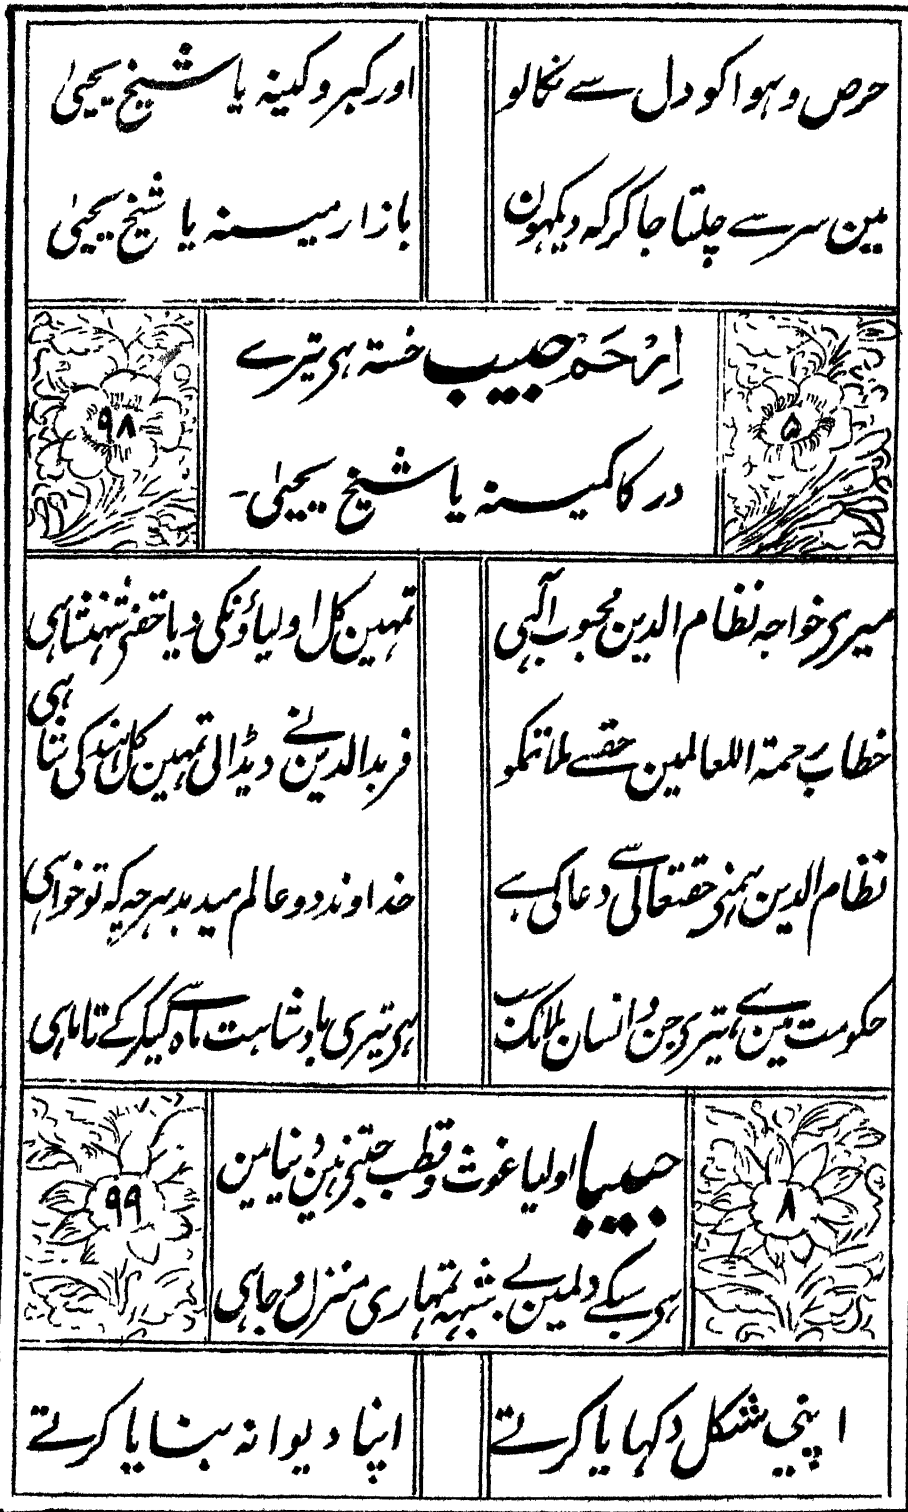 حرص و ہوا کو دل سے نکالو اور کبر و کینہ یا شیخ یحییٰ
مین سر سے چلتا جا کر کہ دیکہون بازار مینہ یا شیخ یحییٰ
۵ اِرْحَمْ حبیب خستہ ہی تیرے ۹۸
در کا کمینہ یا شیخ یحییٰ۔
میری خواجہ نظام الدین محبوب الٰہی تمہین کل اولیاؤنکی دیا حقنی شہنشاہی
خطاب رحمۃ اللعالمین حقسے ملا تمکو فرید الدین نے دیڈالی تمہین کل ہند کی شاہی
نظام الدین ہمنی حقتعالی سے دعا کی ہے خداوند دو عالم میدہد ہر چہ کہ تو خواہی
حکومت مین ہے تیری جن و انسان ملائک سب ہی تیری بادشاہت ماہ سے لیکر کے تا ماہی
۸ حبیبا اولیا غوث و قطب جتنی ہین دنیا مین ۹۹
سبکے دلمین بے شبہہ تمہاری منزل و جاہی
اپنی شکل دکہا یا کرتے اپنا دیوانہ بنا یا کرتے